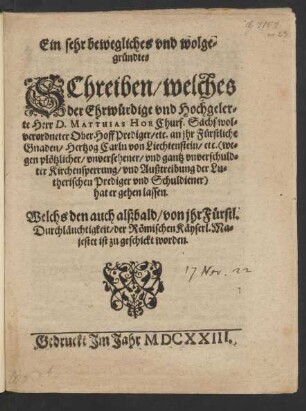 Ein sehr bewegliches vnd wolge-
gründtes
SChreiben/ welches
der Ehrwürdige vnd Hochgeler-
te Herr D. MATTHIAS HOE Churf. Sächs wol-
verordneter Ober-Hoff Prediger/ etc. an jhr Fürstliche
Gnaden/ Hertzog Carln von Liechtenstein/ etc. (we-
gen plötzlicher/ vnversehener/ vnd gantz vnverschuld-
ter Kirchensperrung/ vnd Außtreibung der Lu-
therischen Prediger vnd Schuldiener)
hat ergehen lassen.
Welchs den auch alßbald/ von jhr Fürstl.
Durchläuchtigkeit/ der Römischen Käyserl. Ma-
jestet ist zu geschickt worden.
17 Nov. 22
Gedruckt Im Jahr MDCXXIII.